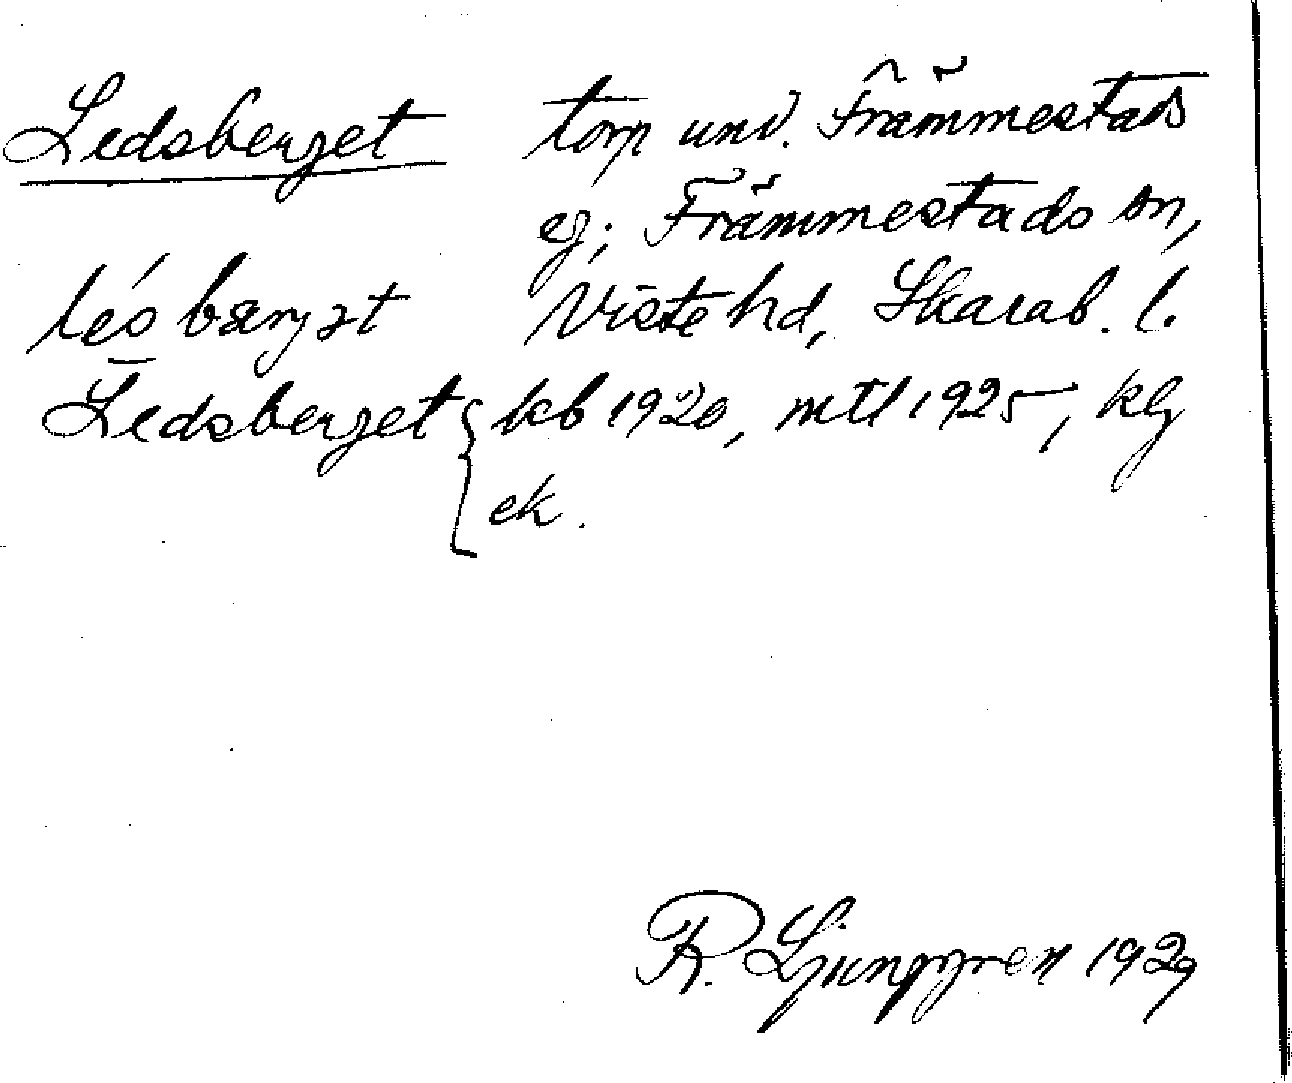 Ledsberget torp und. Främmestads
eg; Främmestads sn,
lés bærjət Viste hd, Skarab. l.
Ledsberget { kb 1920, mtl 1925, klg
ek.
R. Ljunggren 1929